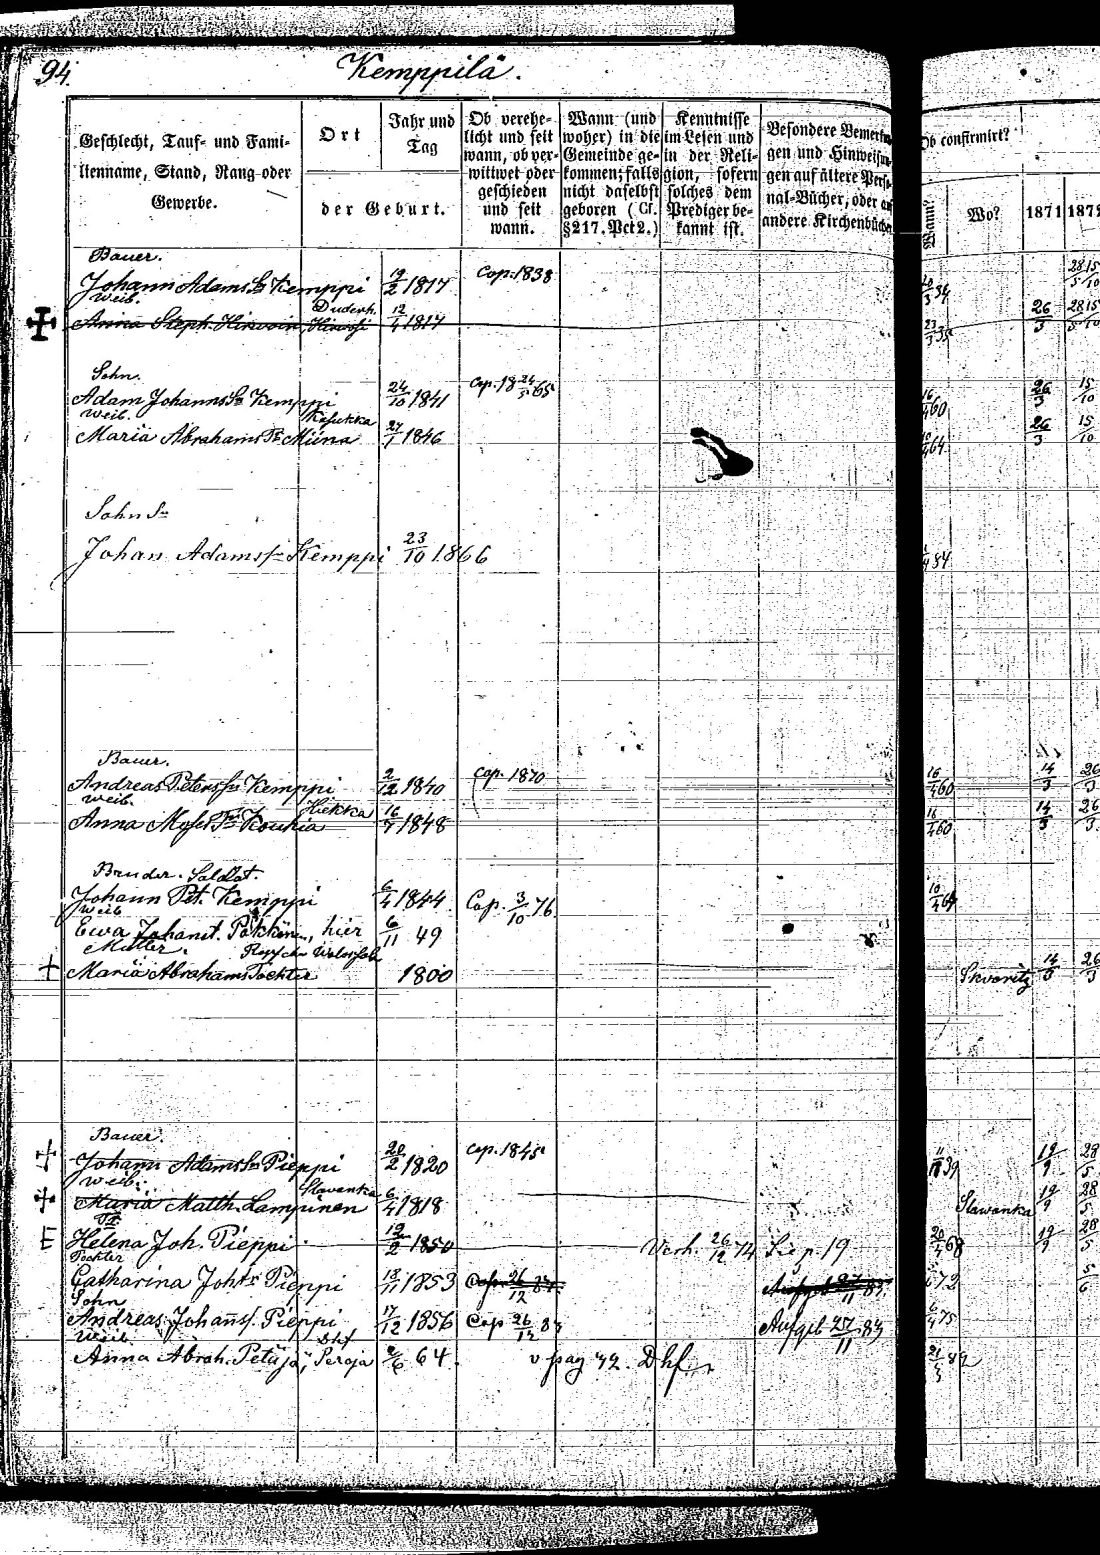 94.
Kemppilä.
Geschlecht, Tauf- und Familienname, Stand, Rang oder Gewerbe.
Ort
Jahr und Tag
der Geburt.
Ob verehelicht und seit wann, ob verwittwet oder geschieden und seit wann.
Wann (und woher) in die Gemeinde gekommen; falls nicht daselbst geboren (Cf. §217. Pct 2.)
Kenntnisse im Lesen und in der Religion, sofern solches dem Prediger bekannt ist.
Besondere Bemerkungen und Hinweisungen auf ältere Personal-Bücher, oder an andere Kirchenbücher
Ob confirmirt?
Wann? Wo? 1871 1872
Bauer.
Johann Adams Sn Kemppi 19/2 1817 Cop. 1838 34 28/5 15/10
Weib. Duderh.
Anna Steph. Hirvoin, Hirvosi 12/4 1817 23/3 35 26/3 28/5 15/10
Sohn.
Adam Johanns Sn Kemppi 24/10 1841 Cop. 18 24/5 65 16/4 60 26/3 15/10
Weib.
Maria Abrahams Tr Miina 27/1 1846 64 26/3 15/10
Sohn Sn
Johan Adamss Kemppi 23/10 1866 84
Bauer.
Andreas Peters Sn Kemppi 2/12 1840 Cop. 1870 16/4 60 14/3 26/3
Weib. Hiekka
Anna Mos. Tr Koukia 16/7 1848 16/4 60 14/3 26/3
Bruder. Soldat.
Johann Pet. Kemppi 6/4 1844 Cop. 3/10 76
Weib
Ewa Johanst. Pökkönen, hier 6/11 49
Mutter.
Maria Abrahams Tochter 1800 Skworitz 14/3 26/3
Bauer.
Johann Adams Sn Pieppi 20/2 1820 Cop. 1845 39 19/9 28/5
Weib. Slavanka
Maria Matth. Lampinen 6/4 1818 Slawanka 19/9 28/5
Tr.
Helena Joh. Pieppi 19/2 1850 Verh. 26/12 74 Siep. 19 20/4 68 19/9 28/5
Tochter
Catharina Johts Pieppi 13/11 1853 Cop. 26/12 84 Aufgeb 27/11 83 72 5/6
Sohn
Andreas Johanns. Pieppi 17/12 1856 Cop 26/12 83 Aufgeb 27/11 83 6/4 75
Weib Dhf
Anna Abrah. Petäjä, Peraja 2/6 64. v pag 42. Dhf.